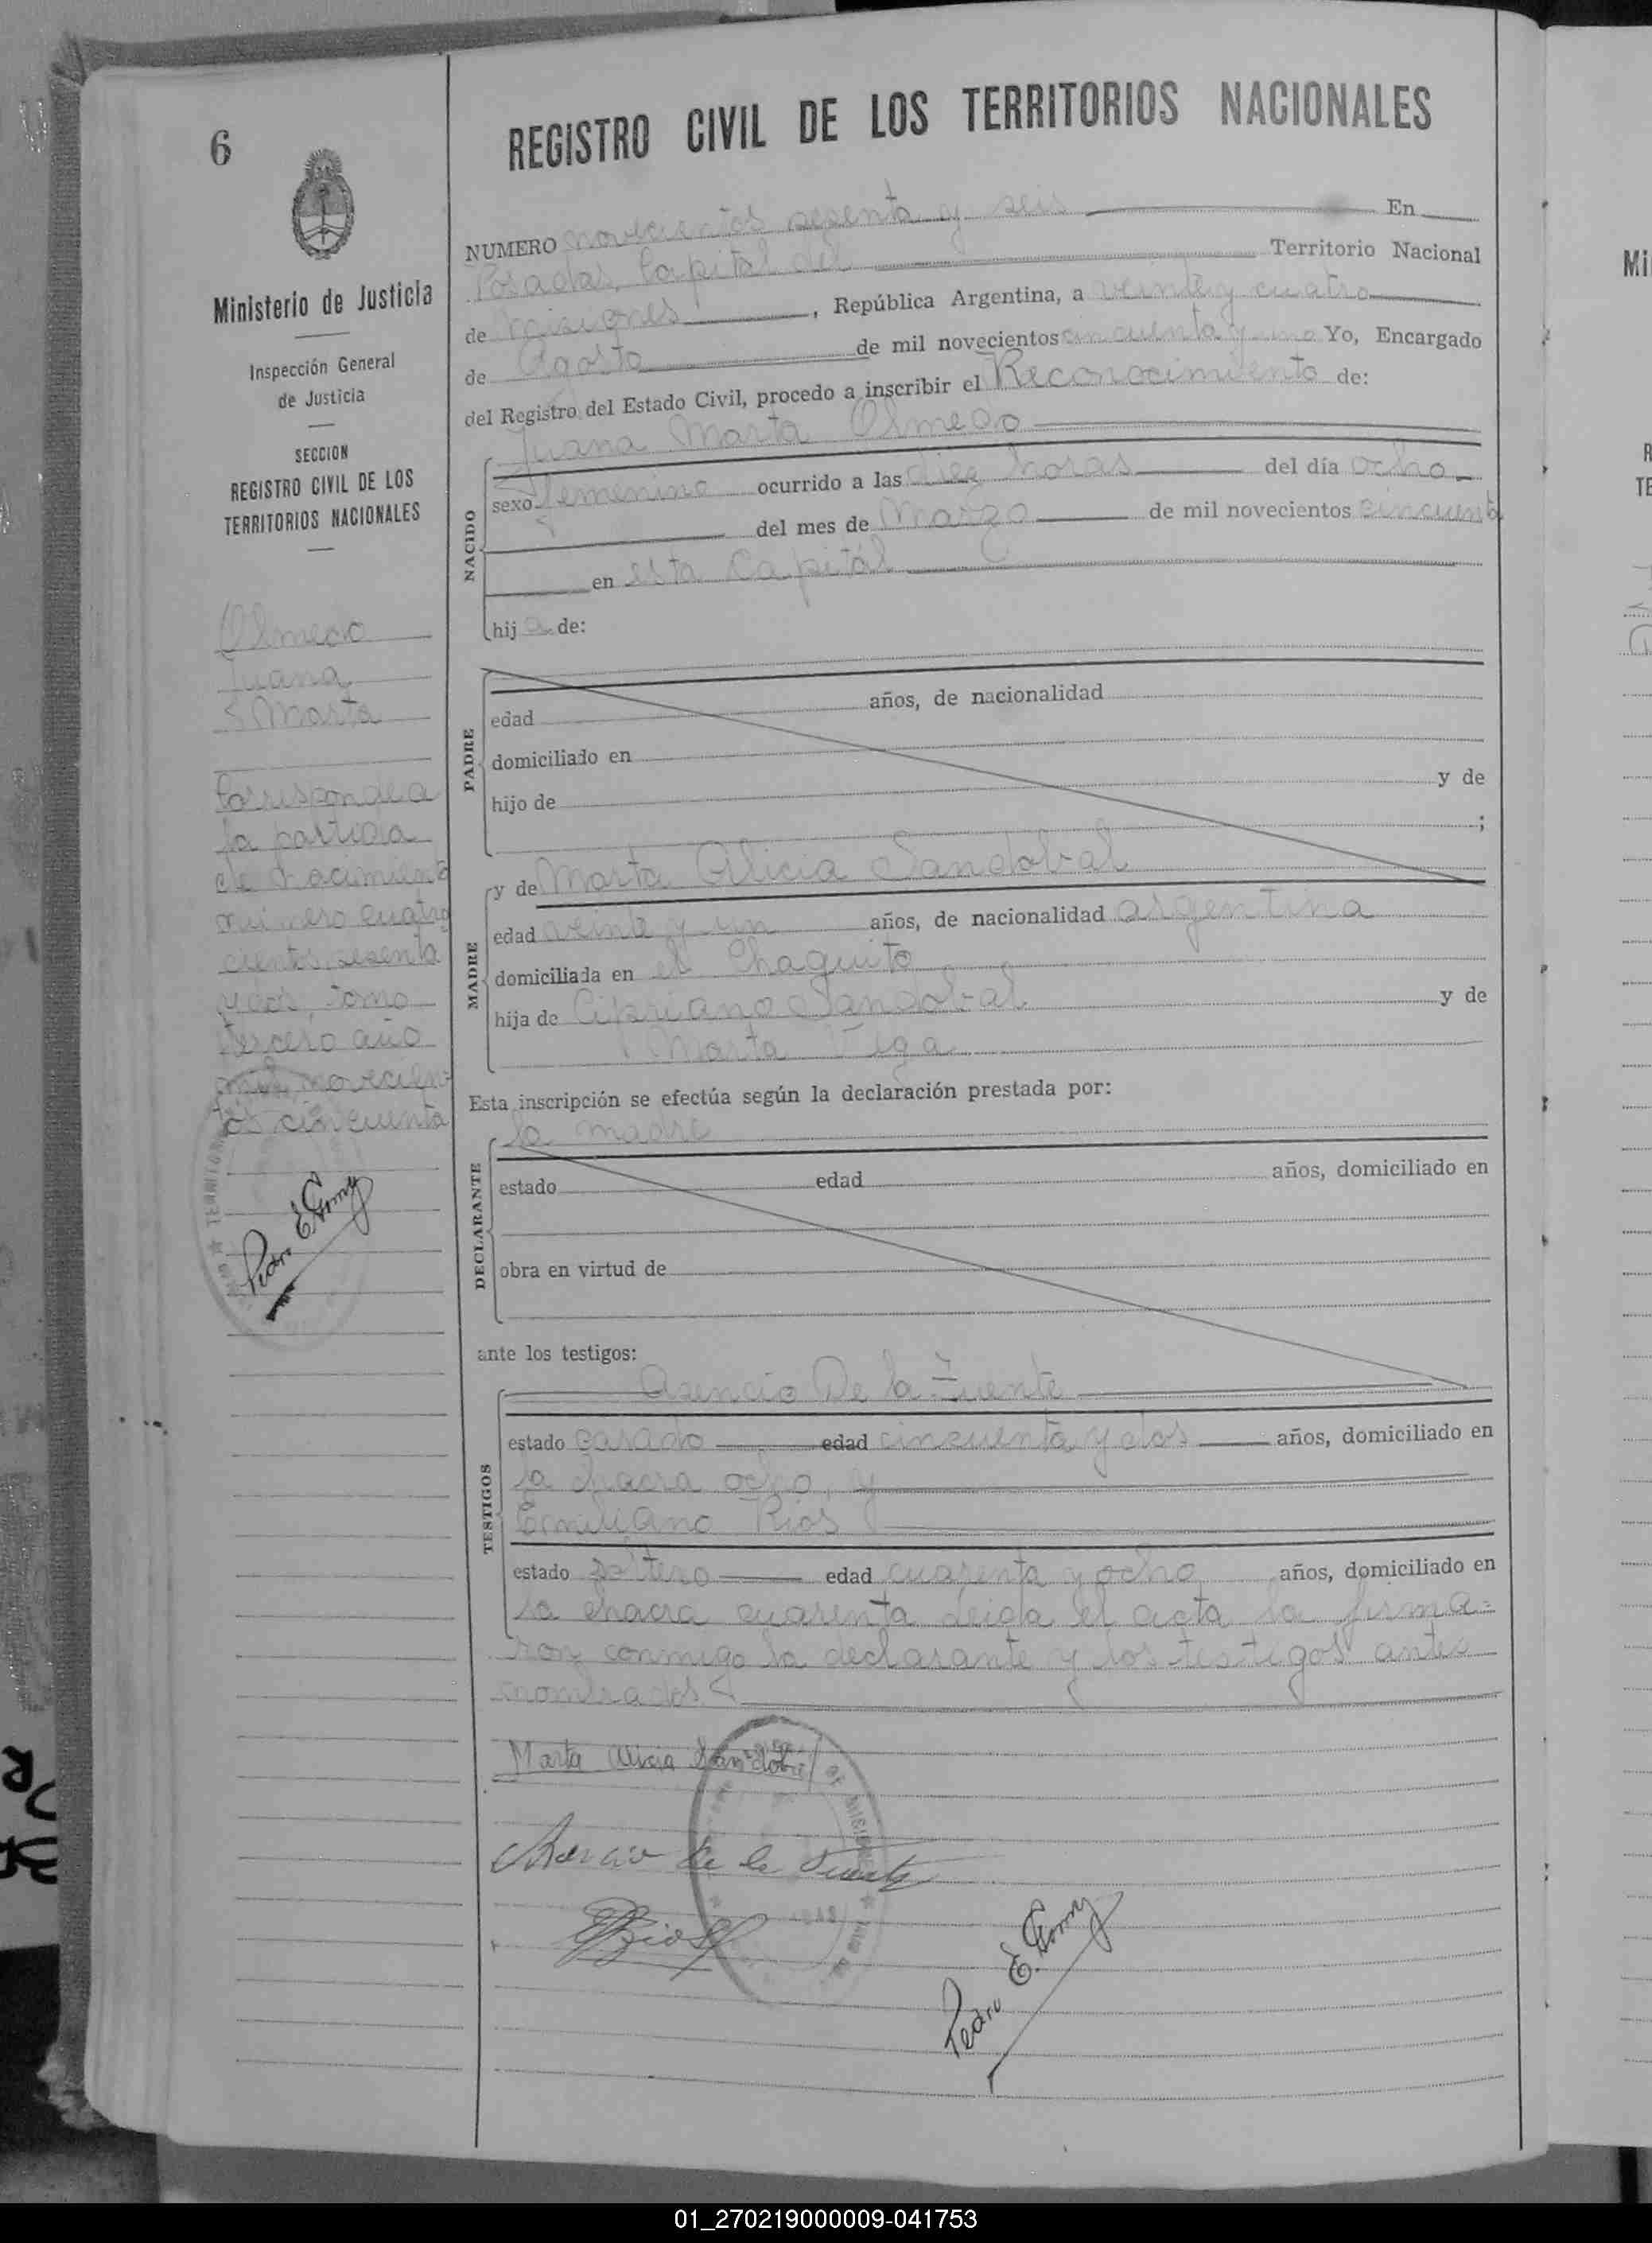 6
Ministerio de Justicia
Inspección General
de Justicia
SECCION
REGISTRO CIVIL DE LOS
TERRITORIOS NACIONALES
Olmedo
Juana
Marta
Corresponde a
la partida
de nacimiento
número cuatro
cientos sesenta
y dos, tomo
tercero año
mil novecien-
tos cincuenta
Pedro E. Gomy
REGISTRO CIVIL DE LOS TERRITORIOS NACIONALES
NUMERO novecientos sesenta y seis En
Posadas, Capital del Territorio Nacional
de Misiones, República Argentina, a veinte y cuatro
de Agosto de mil novecientos cincuenta y uno Yo, Encargado
del Registro del Estado Civil, procedo a inscribir el Reconocimiento de:
Juana Marta Olmedo
NACIDO
sexo femenino ocurrido a las diez horas del día ocho
del mes de Marzo de mil novecientos cincuenta
en esta Capital
hija de:
PADRE
edad años, de nacionalidad
domiciliado en
hijo de y de
;
MADRE
y de Marta Alicia Sandobal
edad veinte y un años, de nacionalidad argentina
domiciliada en el Chaquito
hija de Cipriano Sandobal y de
Marta Vega
Esta inscripción se efectúa según la declaración prestada por:
DECLARANTE
la madre
estado edad años, domiciliado en
obra en virtud de
ante los testigos:
TESTIGOS
Asencio De la Fuente
estado casado edad cincuenta y dos años, domiciliado en
la chacra ocho, y
Emiliano Rios
estado soltero edad cuarenta y ocho años, domiciliado en
la chacra cuarenta Leida el acta la firma=
ron conmigo la declarante y los testigos antes
nombrados
Marta Alicia Sandobal
Asencio de la Fuente
E Rios
Pedro E. Gomy
01_270219000009-041753